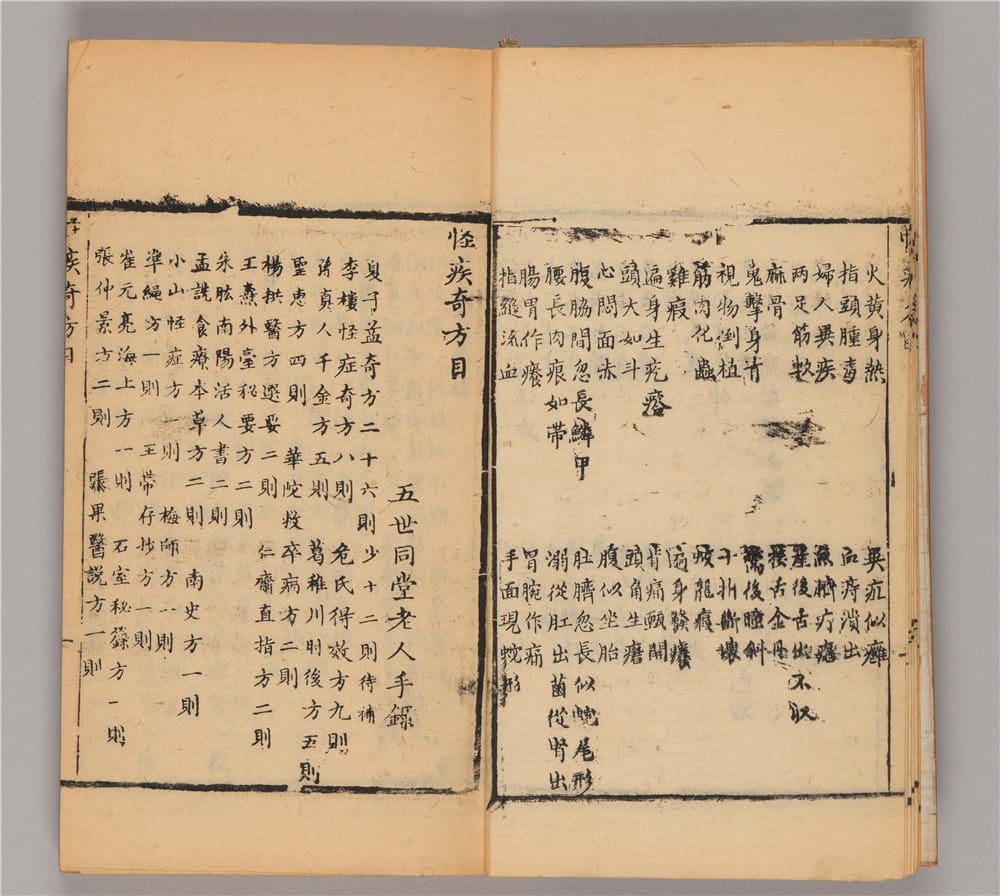 火黃身熱　異疝似癖
指頭腫毒　血痔潰出
婦人異疾　無臍疔瘡
兩足筋　產後舌出不收
麻骨　接舌金丹
鬼擊身青　驚後瞳斜
視物倒植
筋肉化蟲　蛟龍瘕
雞瘕　遍身發癢
遍身生疙瘩　骨痛頭開
頭大如斗　頭角生瘡
心悶面赤　腹似坐胎
腹脇間忽長鱗甲　肚臍忽長似蛇尾形
腰長肉痕如帶　溺從肛出菌從腎出
腸胃作癢　胃脘作痛
指縫流血　手面現蛇形
怪疾奇方目
五世同堂老人手錄
夏子益奇方二十六則少十二則待補
李樓怪症奇方八則　危氏得效方九則
孫真人千金方五則　葛稚川肘後方五則
聖惠方四則　華陀救卒病方二則
楊拱醫方選要二則　仁齋直指方二則
王燾外臺秘要方二則
朱肱南陽活人書二則
孟詵食療本草方二則　南史方一則
小山怪症方一則　梅師方一則
準繩方一則　王帶存抄方一則
崔元亮海上方一則　石室秘籙方一則
張仲景方二則　張果醫說方一則
疾奇方目